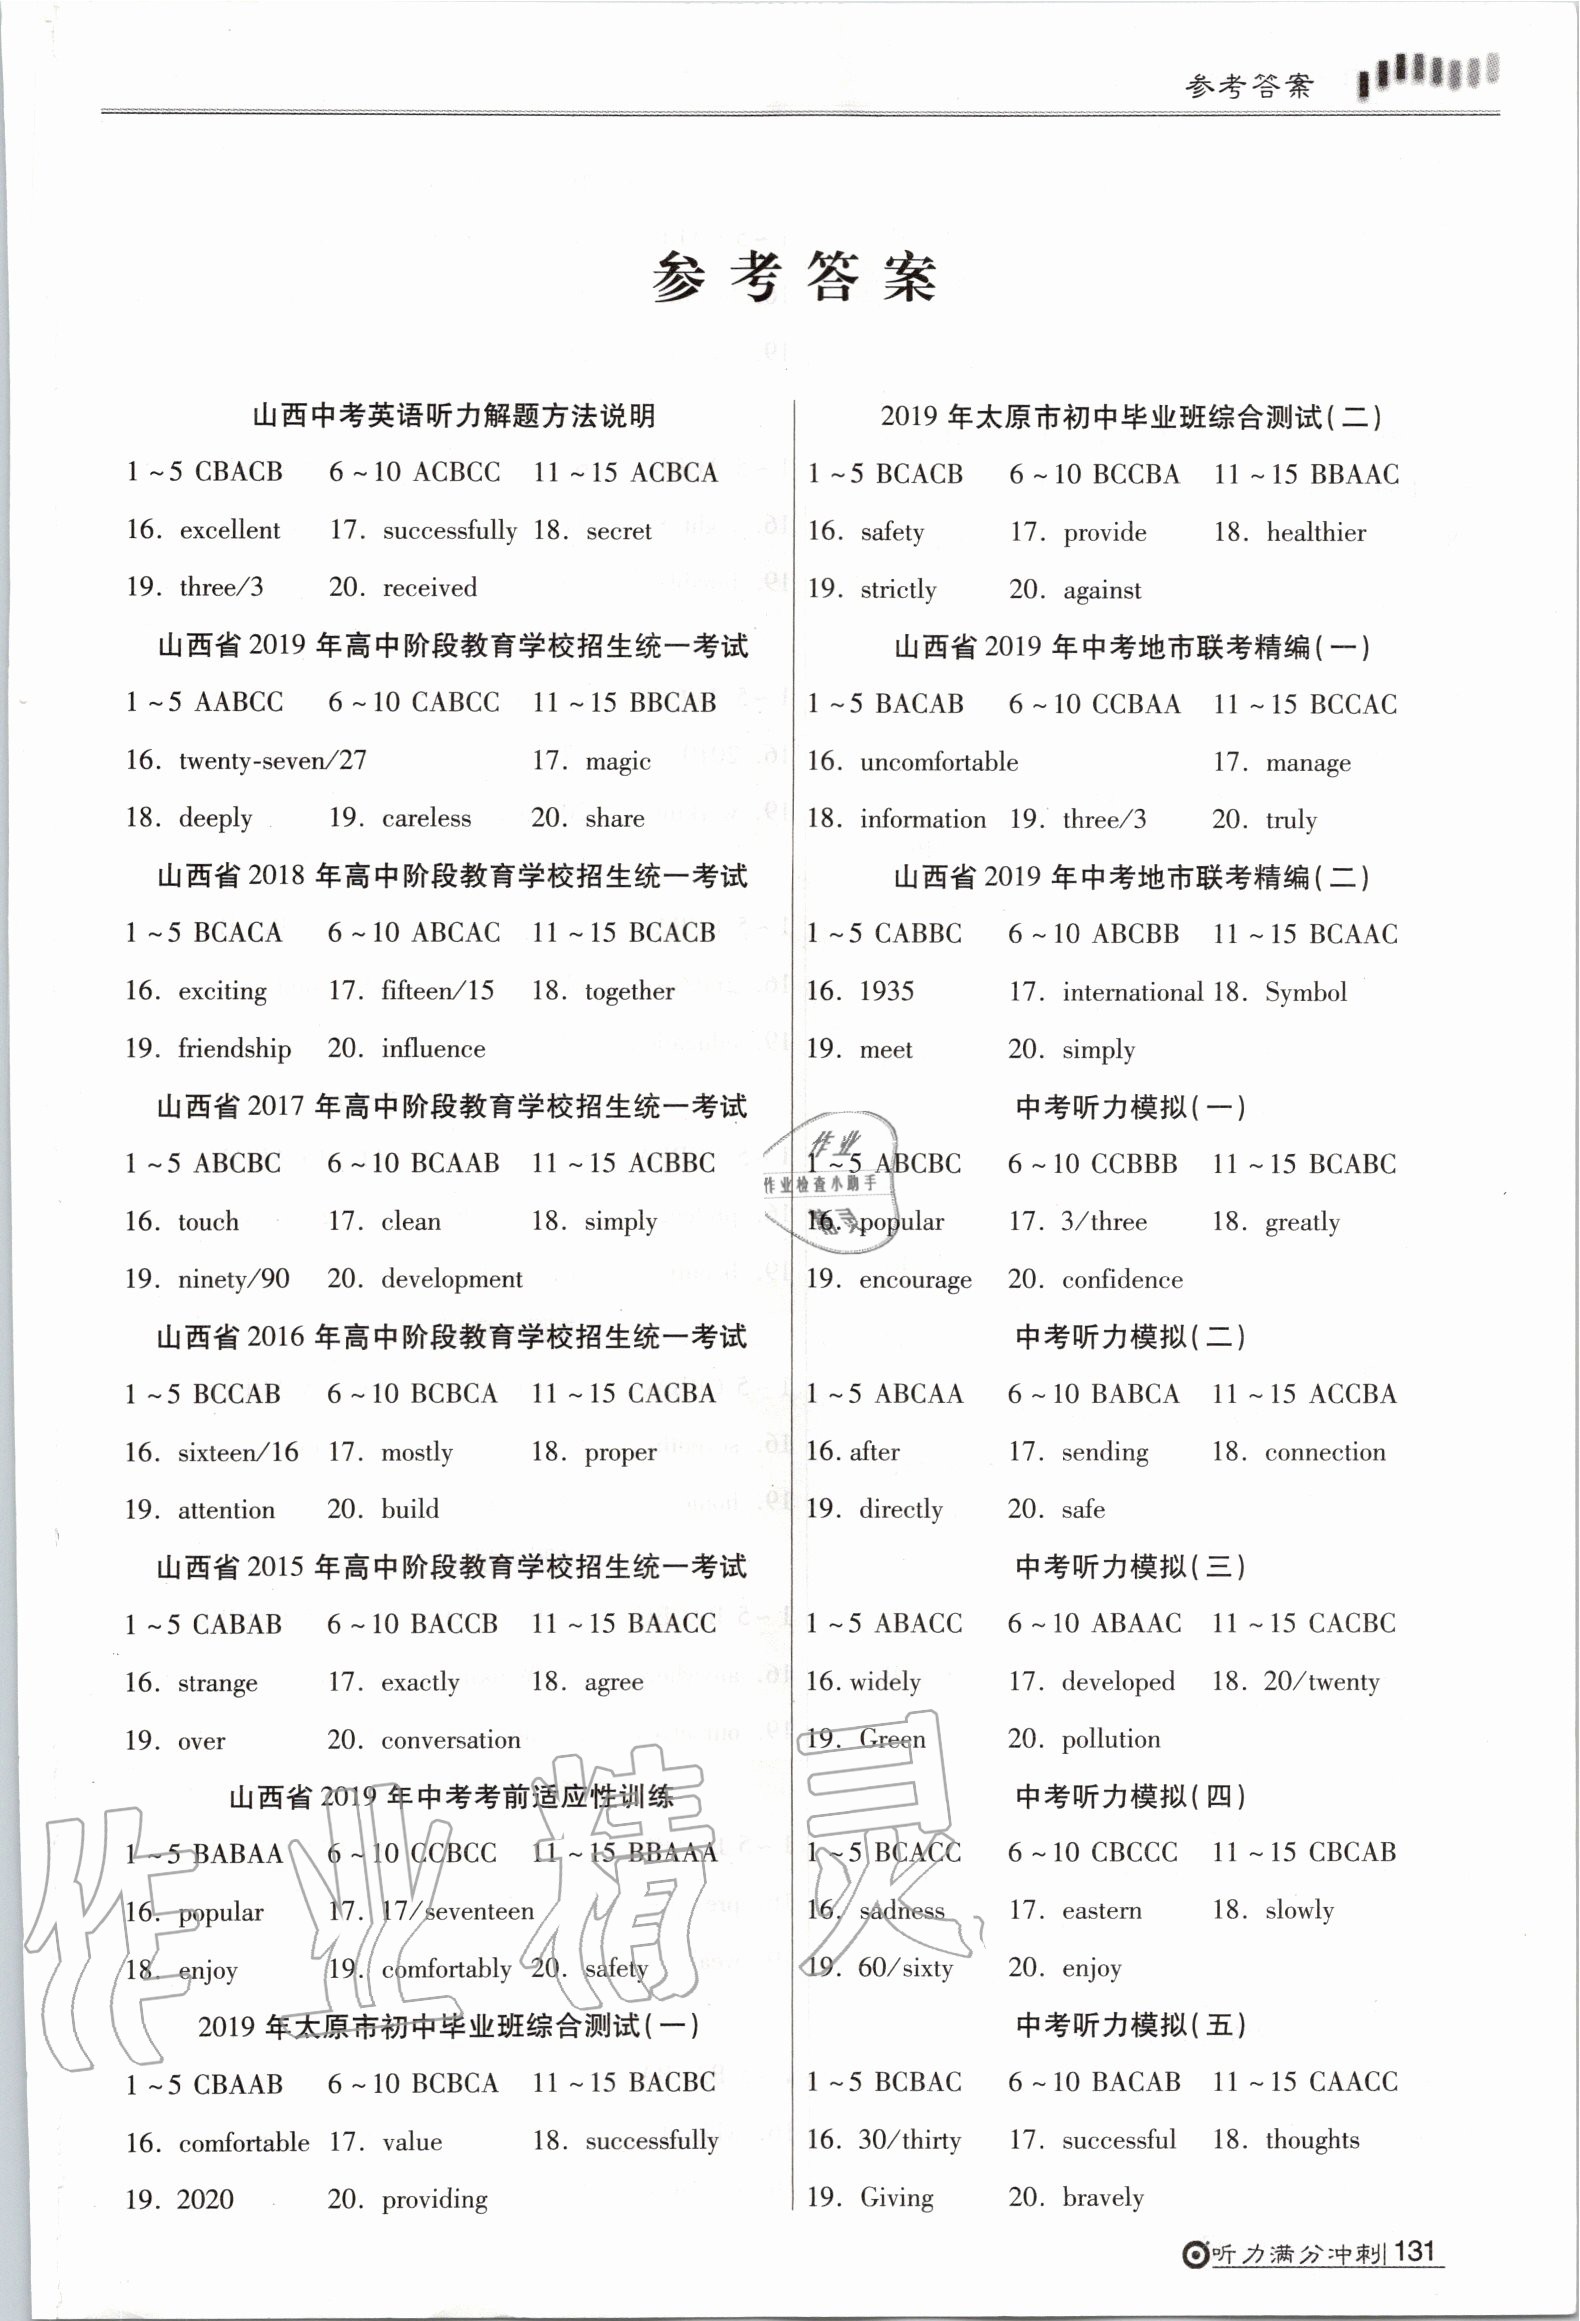 参考答案
参考答案
山西中考英语听力解题方法说明
1~5 CBACB 6~10 ACBCC 11~15 ACBCA
16. excellent 17. successfully 18. secret
19. three/3 20. received
山西省2019年高中阶段教育学校招生统一考试
1~5 AABCC 6~10 CABCC 11~15 BBCAB
16. twenty-seven/27 17. magic
18. deeply 19. careless 20. share
山西省2018年高中阶段教育学校招生统一考试
1~5 BCACA 6~10 ABCAC 11~15 BCACB
16. exciting 17. fifteen/15 18. together
19. friendship 20. influence
山西省2017年高中阶段教育学校招生统一考试
1~5 ABCBC 6~10 BCAAB 11~15 ACBBC
16. touch 17. clean 18. simply
19. ninety/90 20. development
山西省2016年高中阶段教育学校招生统一考试
1~5 BCCAB 6~10 BCBCA 11~15 CACBA
16. sixteen/16 17. mostly 18. proper
19. attention 20. build
山西省2015年高中阶段教育学校招生统一考试
1~5 CABAB 6~10 BACCB 11~15 BAACC
16. strange 17. exactly 18. agree
19. over 20. conversation
山西省2019年中考考前适应性训练
1~5 BABAA 6~10 CCBCC 11~15 BBAAA
16. popular 17. 17/seventeen
18. enjoy 19. comfortably 20. safety
2019年太原市初中毕业班综合测试(一)
1~5 CBAAB 6~10 BCBCA 11~15 BACBC
16. comfortable 17. value 18. successfully
19. 2020 20. providing
2019年太原市初中毕业班综合测试(二)
1~5 BCACB 6~10 BCCBA 11~15 BBAAC
16. safety 17. provide 18. healthier
19. strictly 20. against
山西省2019年中考地市联考精编(一)
1~5 BACAB 6~10 CCBAA 11~15 BCCAC
16. uncomfortable 17. manage
18. information 19. three/3 20. truly
山西省2019年中考地市联考精编(二)
1~5 CABBC 6~10 ABCBB 11~15 BCAAC
16. 1935 17. international 18. Symbol
19. meet 20. simply
中考听力模拟(一)
1~5 ABCBC 6~10 CCBBB 11~15 BCABC
16. popular 17. 3/three 18. greatly
19. encourage 20. confidence
中考听力模拟(二)
1~5 ABCAA 6~10 BABCA 11~15 ACCBA
16. after 17. sending 18. connection
19. directly 20. safe
中考听力模拟(三)
1~5 ABACC 6~10 ABAAC 11~15 CACBC
16. widely 17. developed 18. 20/twenty
19. Green 20. pollution
中考听力模拟(四)
1~5 BCACC 6~10 CBCCC 11~15 CBCAB
16. sadness 17. eastern 18. slowly
19. 60/sixty 20. enjoy
中考听力模拟(五)
1~5 BCBAC 6~10 BACAB 11~15 CAACC
16. 30/thirty 17. successful 18. thoughts
19. Giving 20. bravely
作业
作业检查小助手
精灵
作业精灵
听力满分冲刺 131